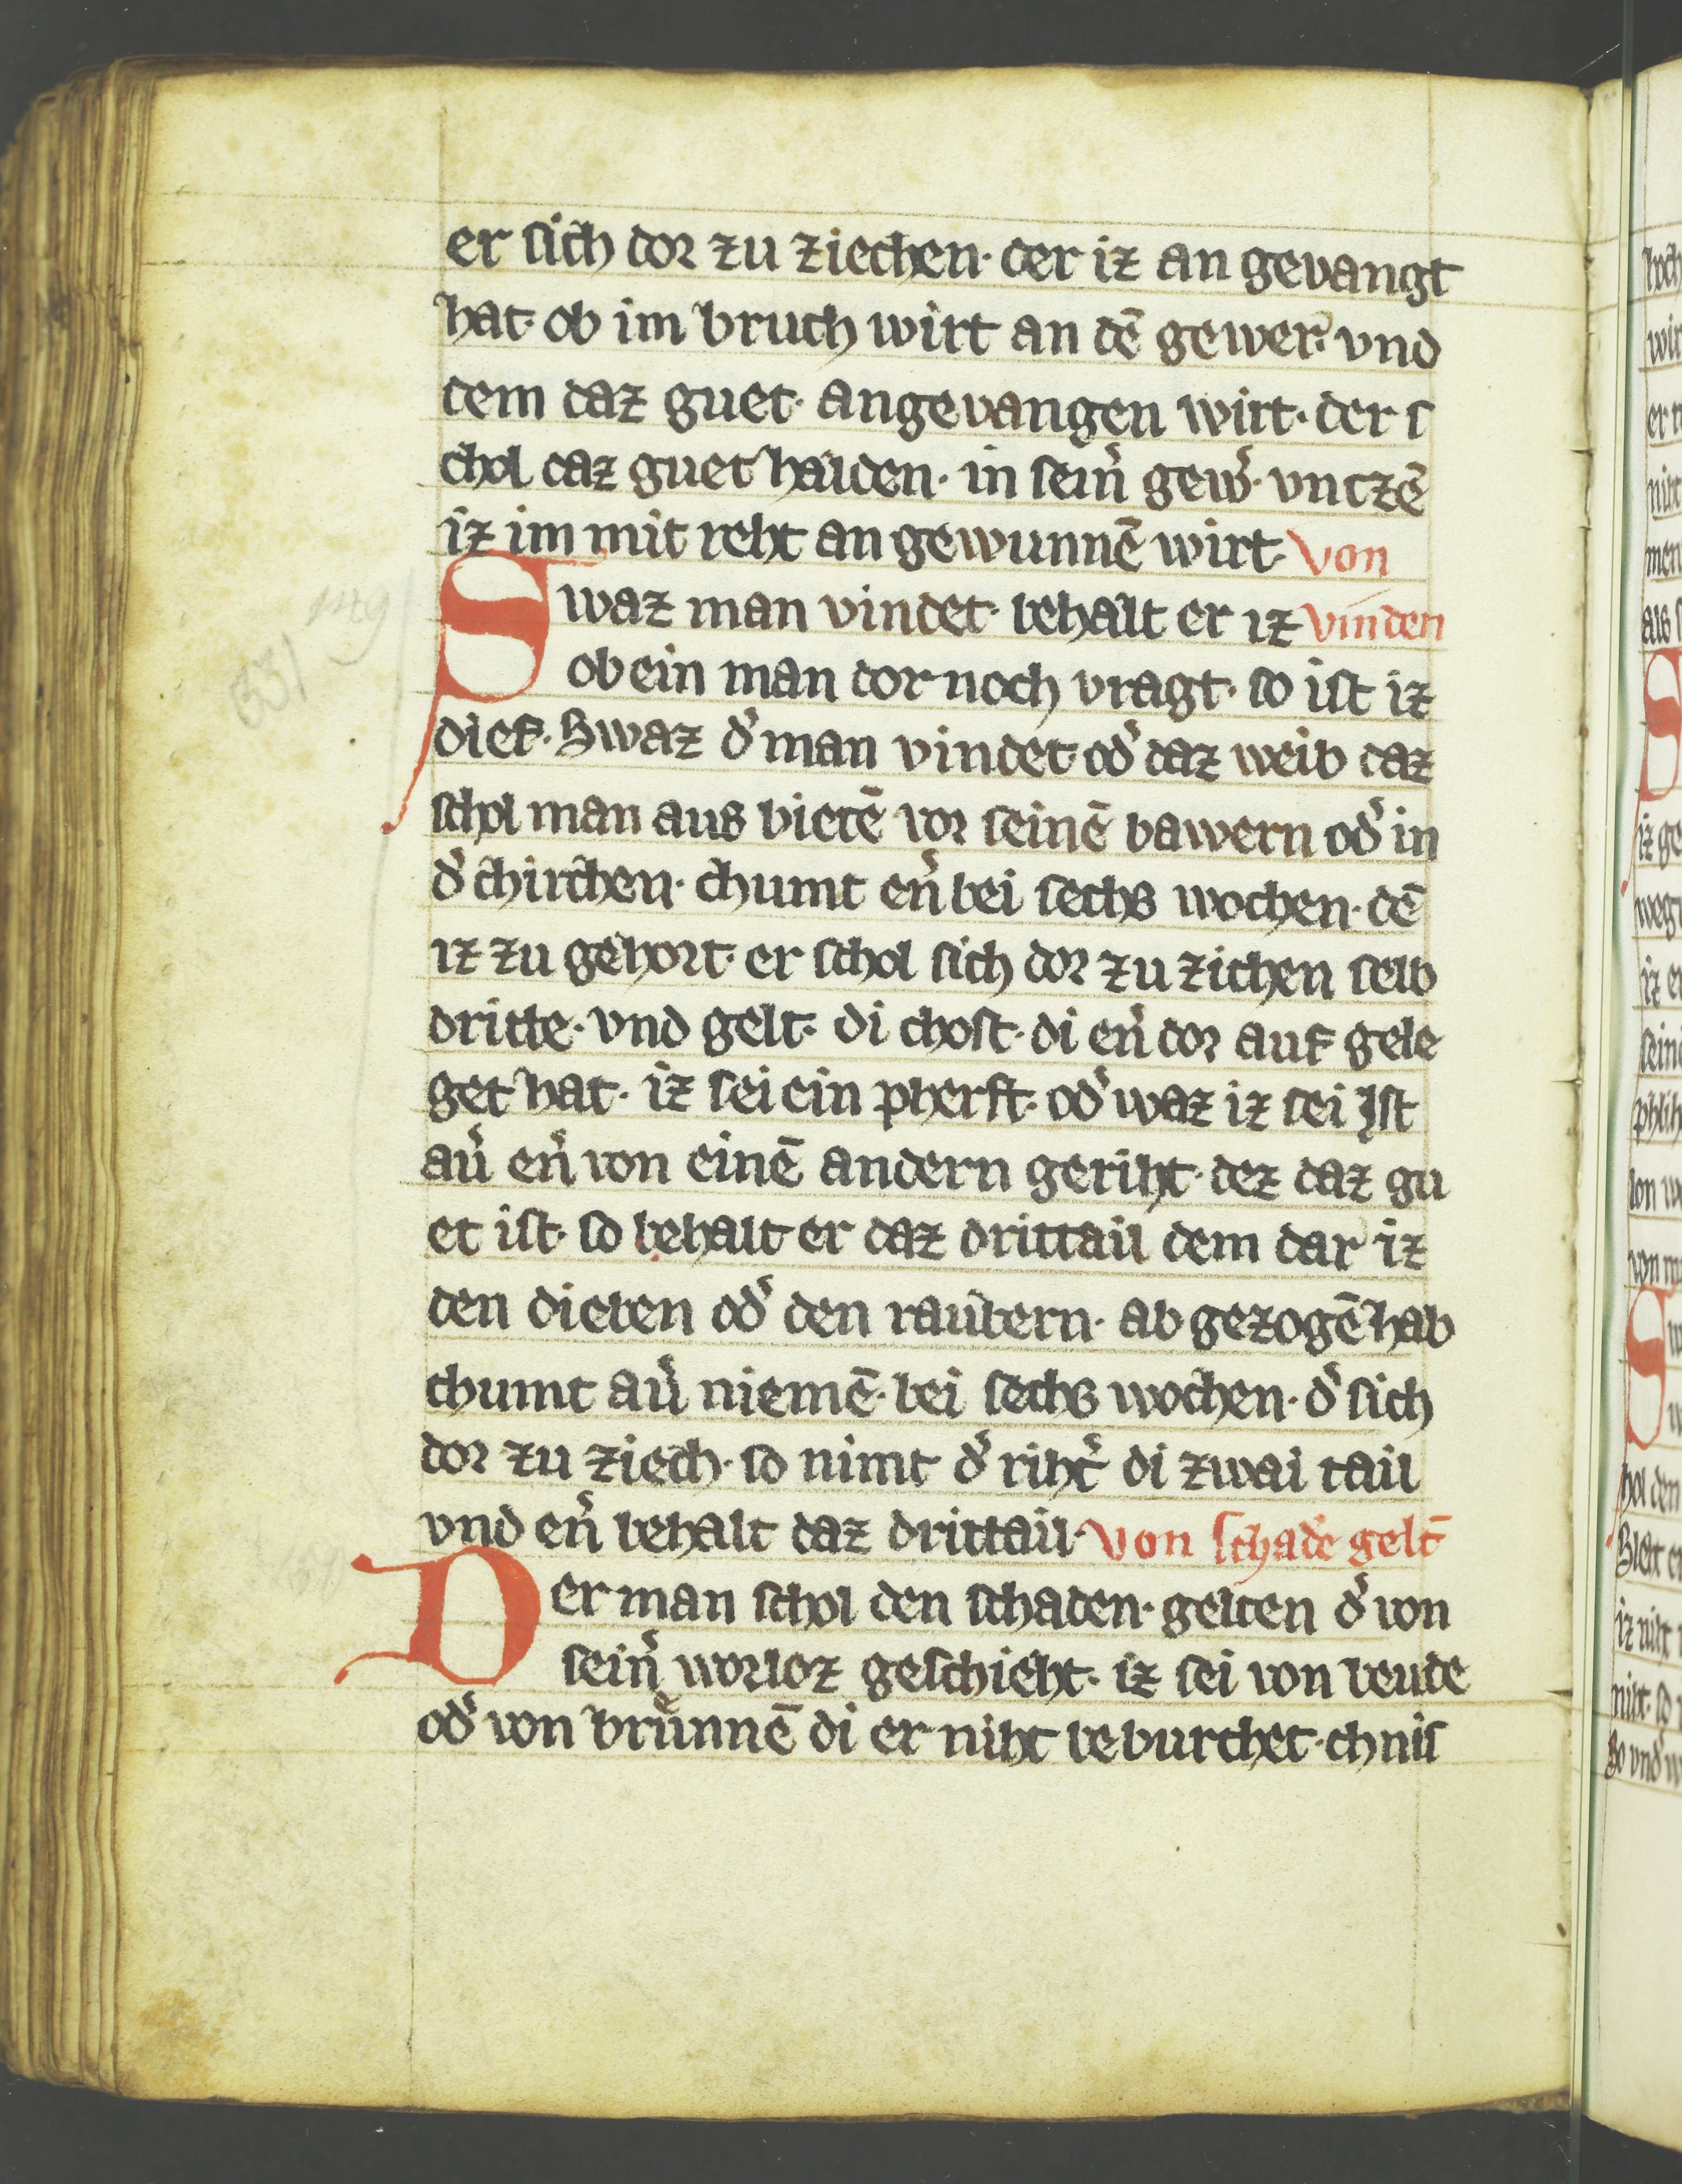 er sich dor zu ziechen· der iz an gevangt
hat· ob im bruch wirt an dē gewer· vnd
dem daz guet· angevangen wirt· der s
chol daz guet halden· in sein̾ gew̾· vntzē
iz im mit reht an gewunnē wirt· Von
Swaz man vindet· behalt er iz vinden
ob ein man dor noch vragt· so ist iz
dief· Swaz d̾ man vindet od̾ daz weib daz
schol man aus bietē vor seinē bawern od̾ in
d̾ chirchen· chumt en̾ bei sechs wochen· dē
iz zu gehort· er schol sich dor zu zichen selb
dritte· vnd gelt· di chost· di en̾ dor auf gele
get hat· iz sei ein pherft· od̾ waz iz sei Ist
au̾ en̾ von einē andern geriht· dez daz gu
et ist· so behalt er daz drittail dem dar iz
den dieben od̾ den raubern· ab gezogē hab
chumt au̾ niemē· bei sechs wochen· d̾ sich
dor zu ziech· so nimt d̾ riht̾ di zwai tail
vnd en̾ behalt daz drittail· Von schadē gelt̄
Der man schol den schaden· gelten d̾ von
sein̾ worloz geschieht· iz sei von leude
od̾ von brunnē di er niht beburchet· chnis